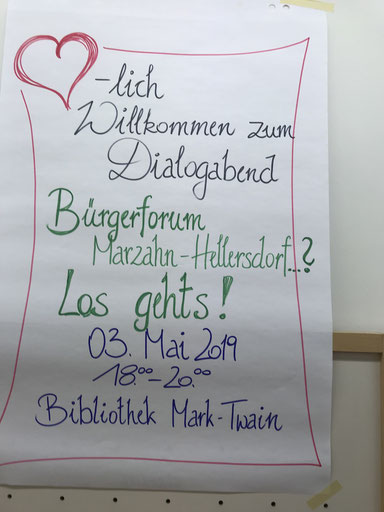 -lich
Willkommen zum
Dialogabend
Bürgerforum
Marzahn-Hellersdorf...?
Los gehts!
03. Mai 2019
18.00-20.00
Bibliothek Mark-Twain